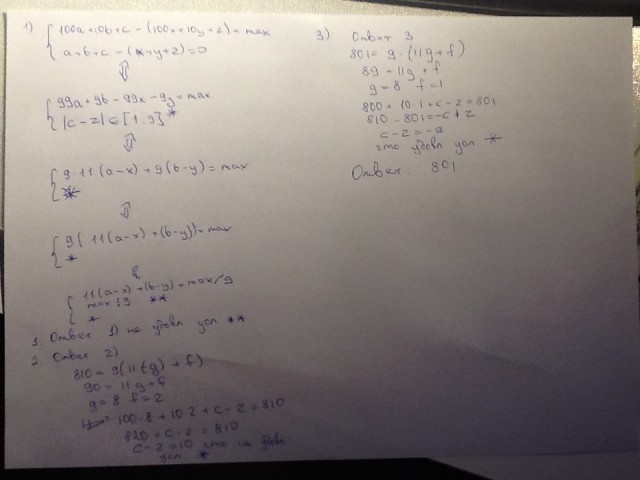 1) { 100a + 10b + c - (100x + 10y + z) = max
a + b + c - (x + y + z) = 0
⇕
{ 99a + 9b - 99x - 9y = max
|c - z| ∈ [1..9] *
⇕
{ 9·11(a-x) + 9(b-y) = max
*
⇕
{ 9(11(a-x) + (b-y)) = max
*
⇕
{ 11(a-x) + (b-y) = max/9
max ⋮ 9 **
*
1. Ответ 1) не удовл усл **
2. Ответ 2)
810 = 9(11g) + f)
90 = 11g + f
g = 8 f = 2
100·8 + 10·2 + c - z = 810
820 + c - z = 810
c - z = 10 что не удовл
усл *
3) Ответ 3
801 = 9·(11g + f)
89 = 11g + f
g = 8 f = 1
800 + 10·1 + c - z = 801
810 - 801 = -c + z
c - z = -9
что удовл усл *
Ответ: 801